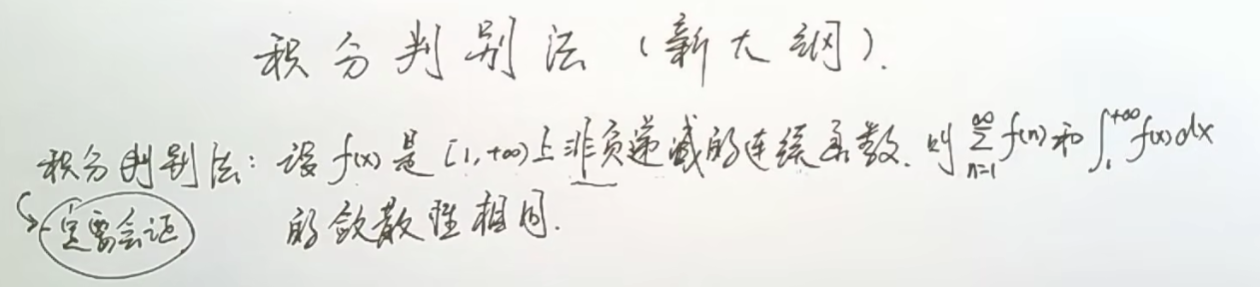 积分判别法（新大纲）.
积分判别法：设 f(x) 是 [1,+∞) 上非负递减的连续函数. 则 ∑_{n=1}^{∞} f(n) 和 ∫_1^{+∞} f(x)dx
的敛散性相同.
一定需会证